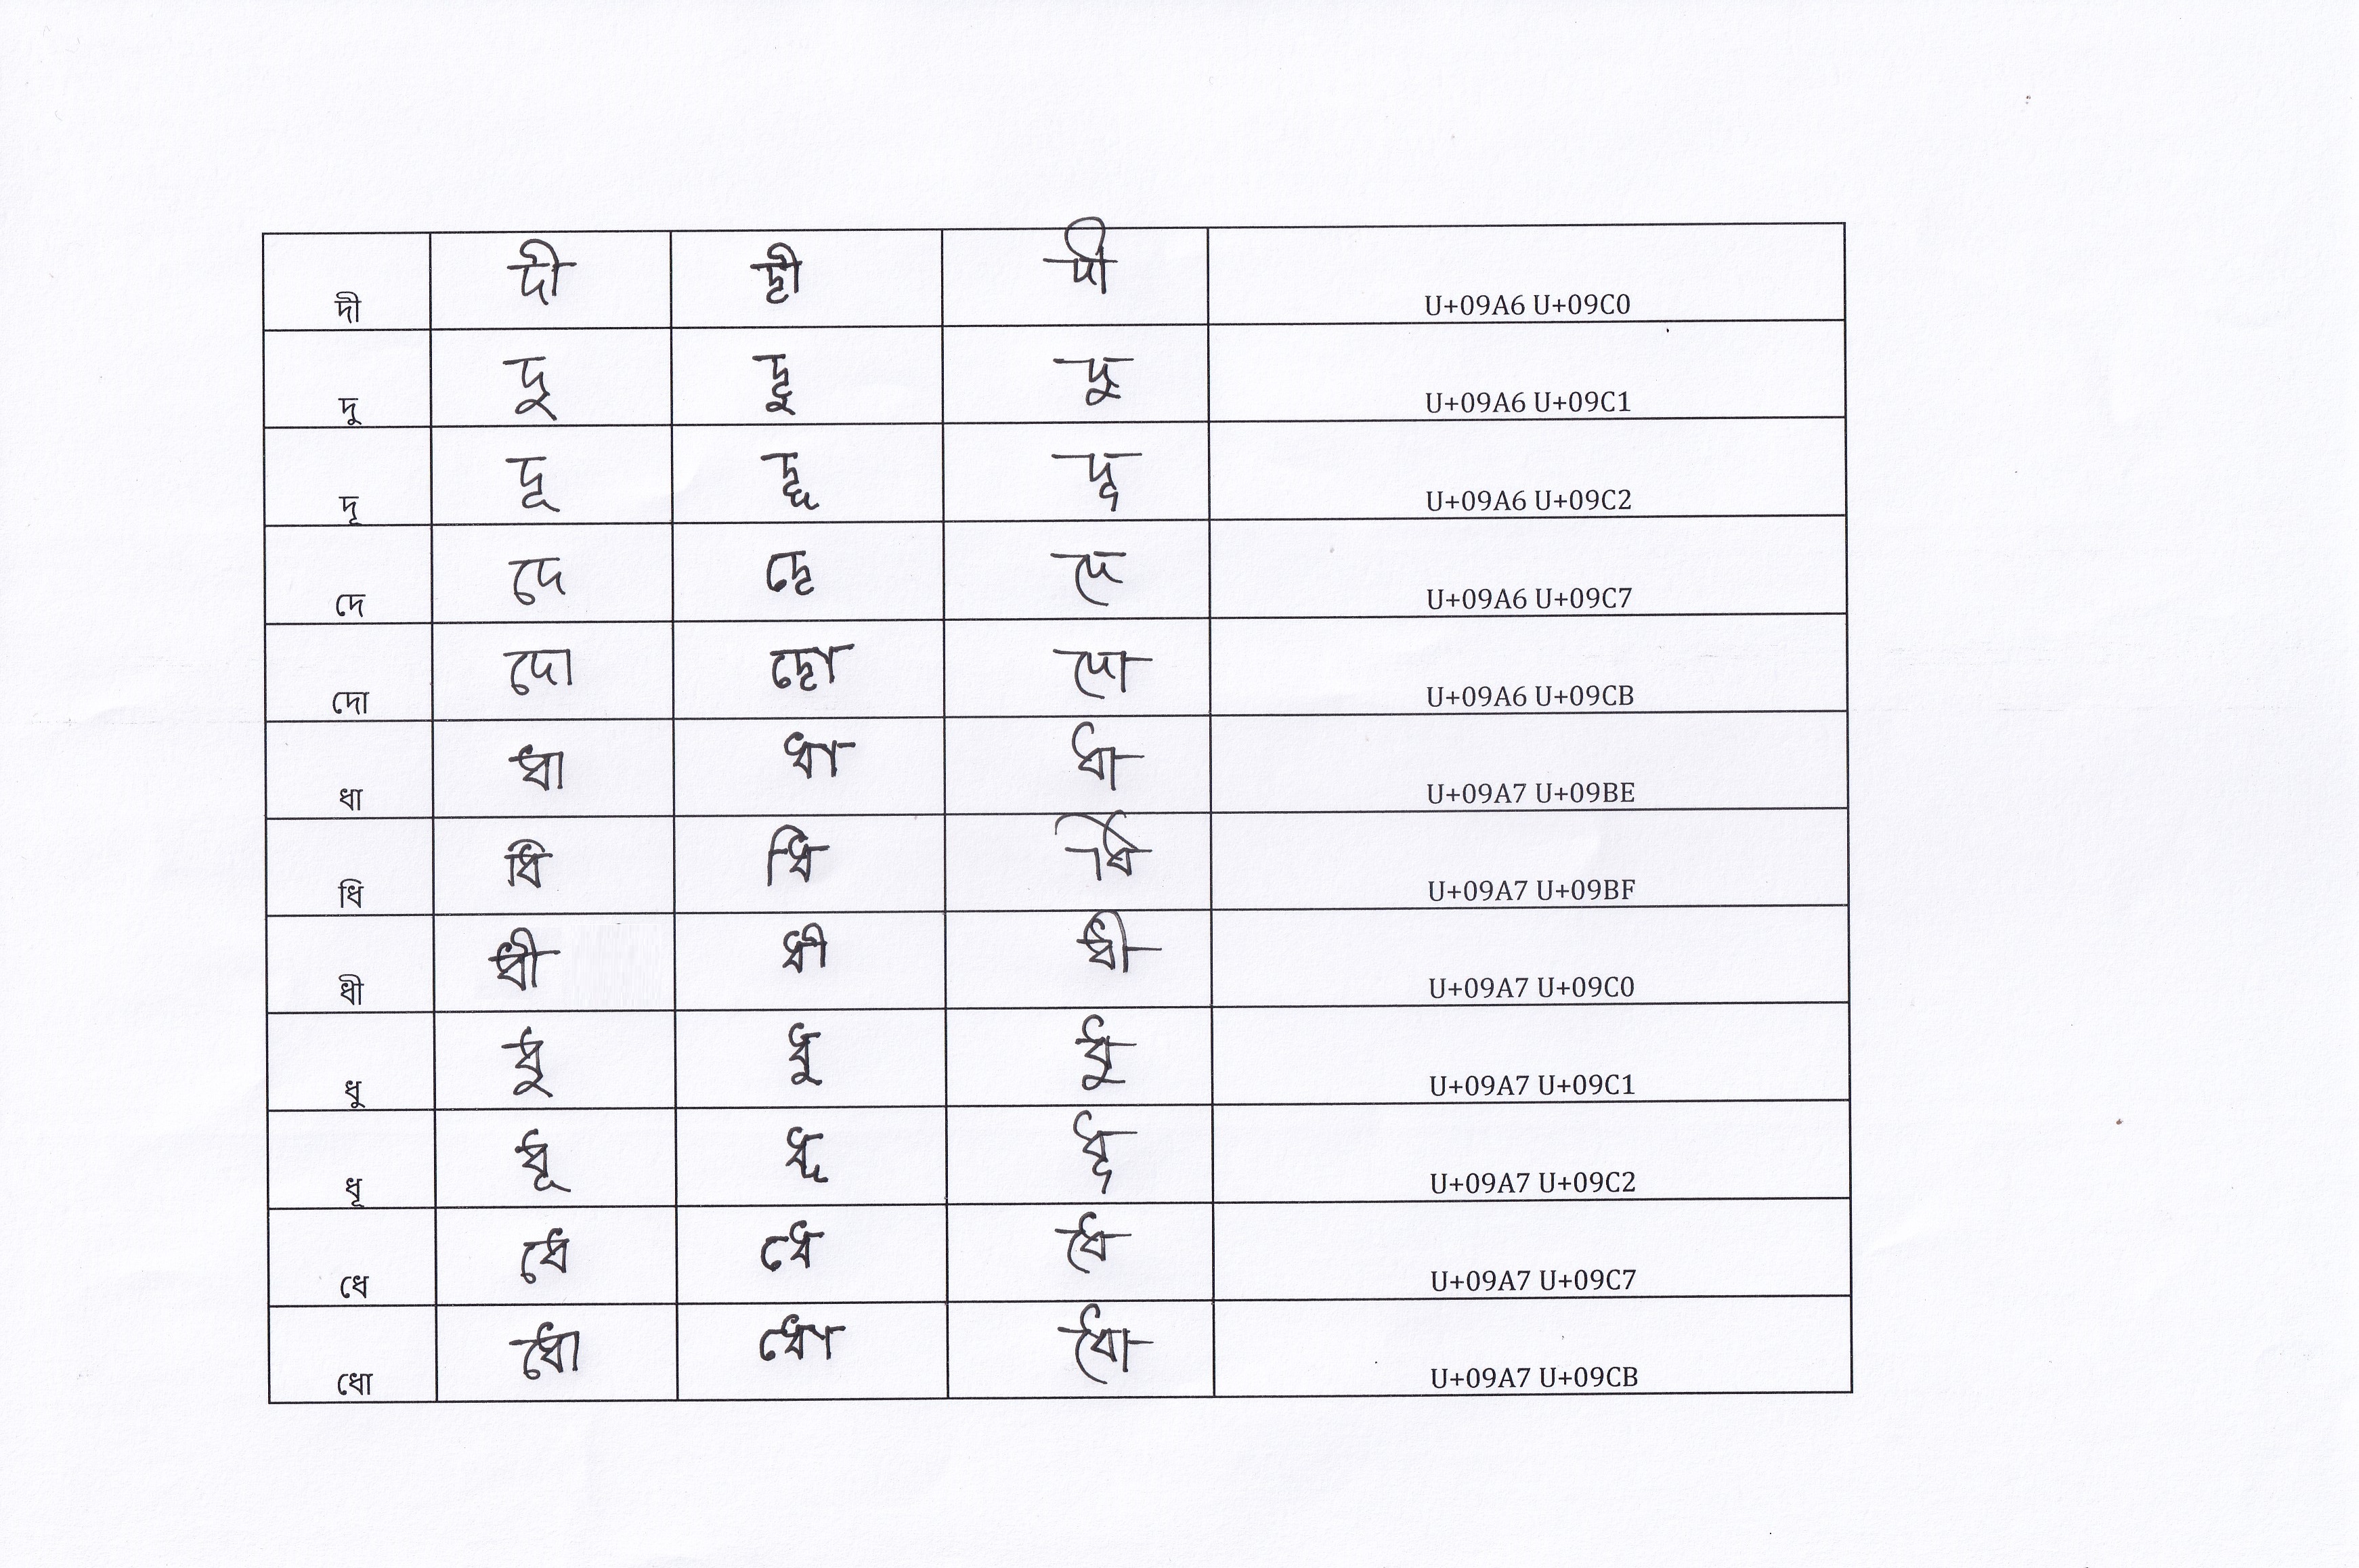 দী দী দী দী U+09A6 U+09C0
দু দু দু দু U+09A6 U+09C1
দূ দূ দূ দূ U+09A6 U+09C2
দে দে দে দে U+09A6 U+09C7
দো দো দো দো U+09A6 U+09CB
ধা ধা ধা ধা U+09A7 U+09BE
ধি ধি ধি ধি U+09A7 U+09BF
ধী ধী ধী ধী U+09A7 U+09C0
ধু ধু ধু ধু U+09A7 U+09C1
ধূ ধূ ধূ ধূ U+09A7 U+09C2
ধে ধে ধে ধে U+09A7 U+09C7
ধো ধো ধো ধো U+09A7 U+09CB